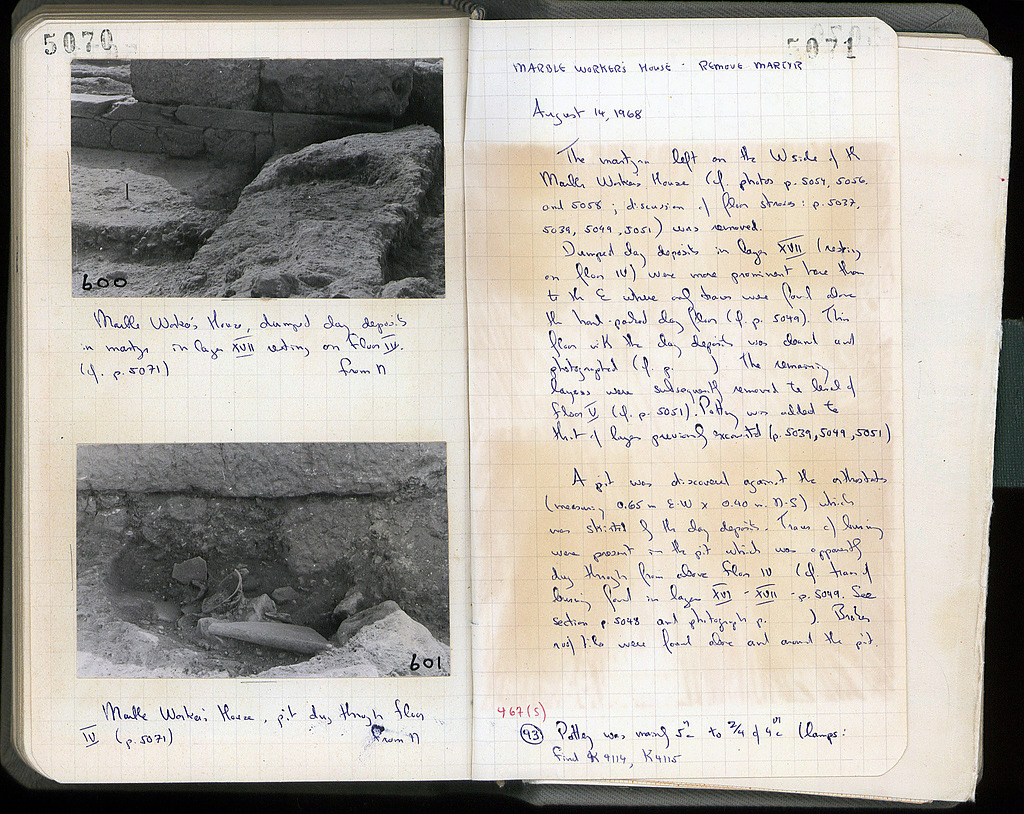 5070
600
Marble Worker's House, dumped clay deposits
in martyr in layer XVII resting on Floor IV.
(cf. p. 5071) from N
601
Marble Worker's House, pit dug through floor
IV (p. 5071) from N
5071
MARBLE WORKER'S HOUSE - REMOVE MARTYR
August 14, 1968
The martyr left on the W side of the
Marble Worker's House (cf. photos p. 5054, 5056,
and 5058; discussion of floor strosis: p. 5037,
5039, 5049, 5051) was removed.
Dumped clay deposits in layer XVII (resting
on floor IV) were more prominent here than
to the E where only traces were found above
the hard-packed clay floor (cf. p. 5049). This
floor with the clay deposits was cleaned and
photographed (cf. p. ) The remaining
layers were subsequently removed to level of
Floor V (cf. p. 5051). Pottery was added to
that of layers previously excavated (p. 5039, 5049, 5051)
A pit was discovered against the orthostats
(measuring 0.65 m E-W x 0.40 m. N-S) which
was of the clay deposits. Traces of burning
were present in the pit which was apparently
dug through from above Floor IV (cf. traces of
burning found in layer XVI - XVII - p. 5049. See
section p. 5048 and photograph p. ). Broken
roof tiles were found above and around the pit.
467(S)
93 Pottery was mainly 5c to 3/4 of 4c (lamps:
find K 4114, K 4115